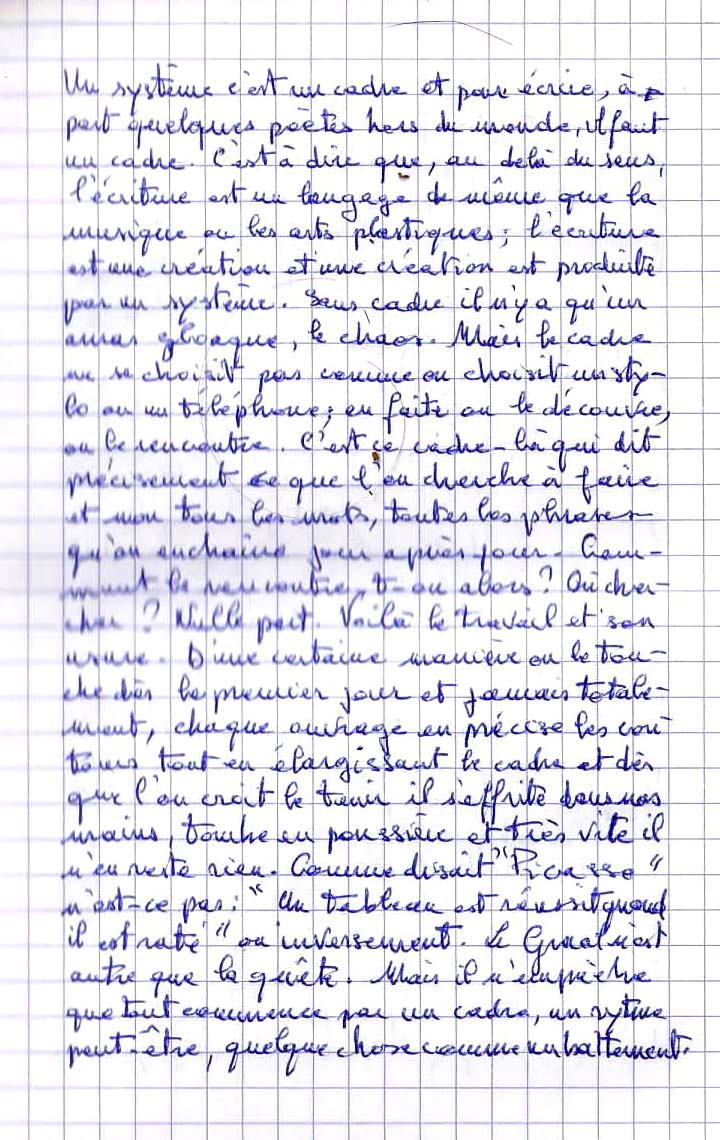 Un système c'est un cadre et pour écrire, à
part quelques poètes hors du monde, il faut
un cadre. C'est à dire que, au delà du sens,
l'écriture est un langage de même que la
musique ou les arts plastiques ; l'écriture
est une création et une création est produite
par un système. Sans cadre il n'y a qu'un
amas glauque, le chaos. Mais le cadre
ne se choisit pas comme on choisit un sty-
lo ou un téléphone ; en faite on le découvre,
on le rencontre. C'est ce cadre-là qui dit
précisement ce que l'on cherche à faire
et non tous les mots, toutes les phrases
qu'on enchaîne jour après jour. Com-
ment le rencontre-t-on alors ? Où cher-
cher ? Nulle part. Voilà le travail et son
usure. D'une certaine manière on le tou-
che dès le premier jour et jamais totale-
ment, chaque ouvrage en précise les con-
tours tout en élargissant le cadre et dès
que l'on croit le tenir il s'effrite dans nos
mains, tombe en poussière et très vite il
n'en reste rien. Comme disait "Picasso"
n'est-ce pas : "Un tableau est réussit quand
il est raté" ou inversement. Le Graal n'est
autre que la quête. Mais il n'empêche
que tout commence par un cadre, un rytme
peut-être, quelque chose comme un battement.